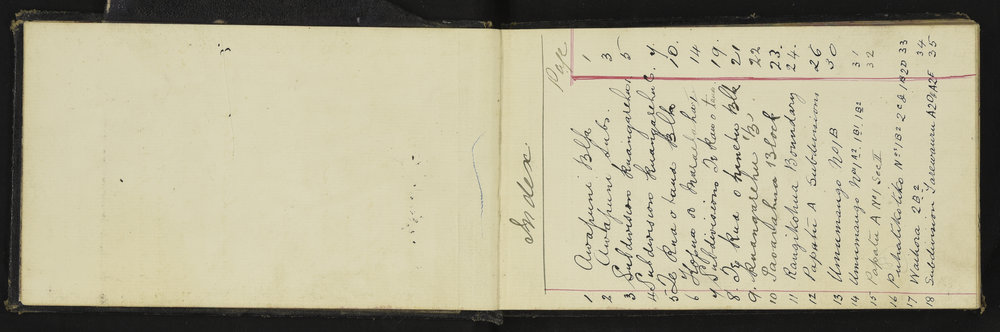 Index
Page
1 Awapuni Blk 1
2 Awapuni Subs. 3
3 Subdivision Kuangarehu 5
4 Subdivision Kuangarehu C. 7
5 Te Kua o taua Blk 10.
6 or 14
7 Subdivisions Te Kua o taua 19.
8. Te Kua o Blk 21
9. Kuangarehu B. 22
10 Block 23.
11 Rangikohua Boundary 24.
12 Paputu A Subdivisions 26
13 Umumango No 1B 30
14 Umumango No 1A2 1B1. 1B2 31
15 Paputu A No 1 Sec II 32
16 Puhatikotiko No 1B2 2C2 1B2D 33
17 Waihora 2B2 34
18 Subdivision Tarewauru A2D & A2F 35